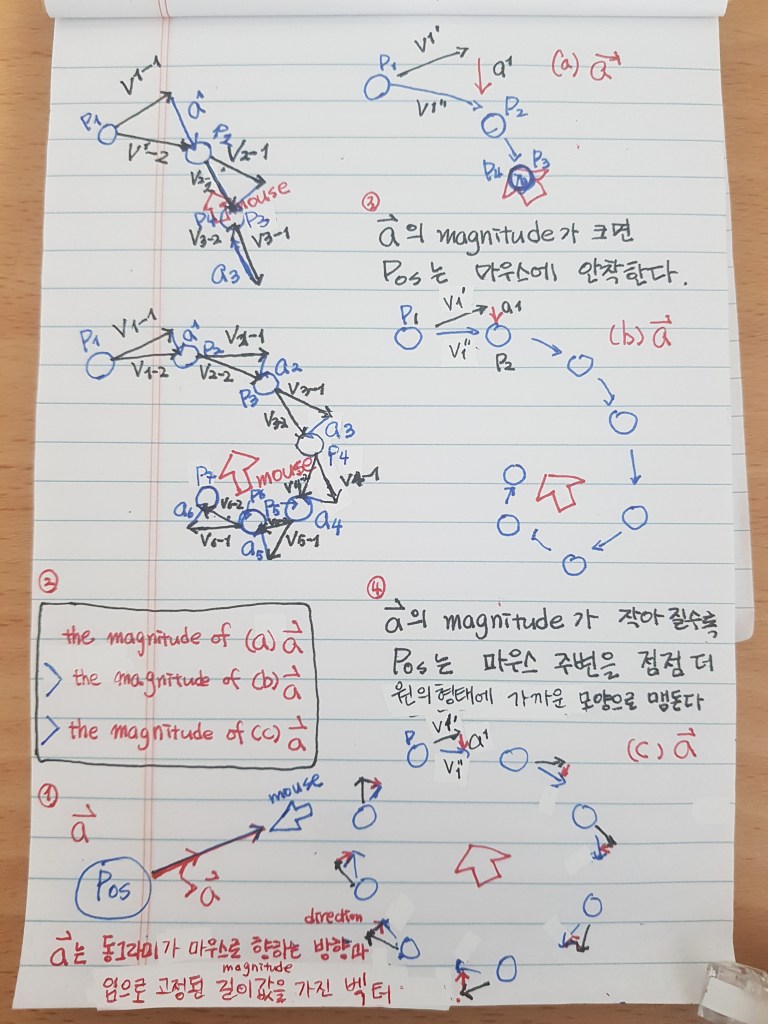 V1-1
a1
P1
P2
V1-2
V2-1
V2-2
mouse
P4 P3
V3-2 V3-1
a3
P1
V1'
a1
(a) a
V1''
P2
P4 P3
③
a의 magnitude가 크면
Pos는 마우스에 안착한다.
P1 V1' a1
(b) a
V1''
P2
P1 V1-1 a1
P2 V2-1
V1-2 V2-2 a2
P3 V3-1
V3-2 a3
P4
mouse
V4-2 V4-1
P7
a6 V6-2 P6 P5 a4
V6-1 a5 V5-1
②
the magnitude of (a) a
> the magnitude of (b) a
> the magnitude of (c) a
④
a의 magnitude가 작아질수록
Pos는 마우스 주변을 점점 더
원의 형태에 가까운 모양으로 맴돈다
P V1' a1
V1''
(c) a
①
a
mouse
Pos
a
direction
a는 동그라미가 마우스를 향하는 방향과
magnitude
임으로 고정된 길이값을 가진 벡터